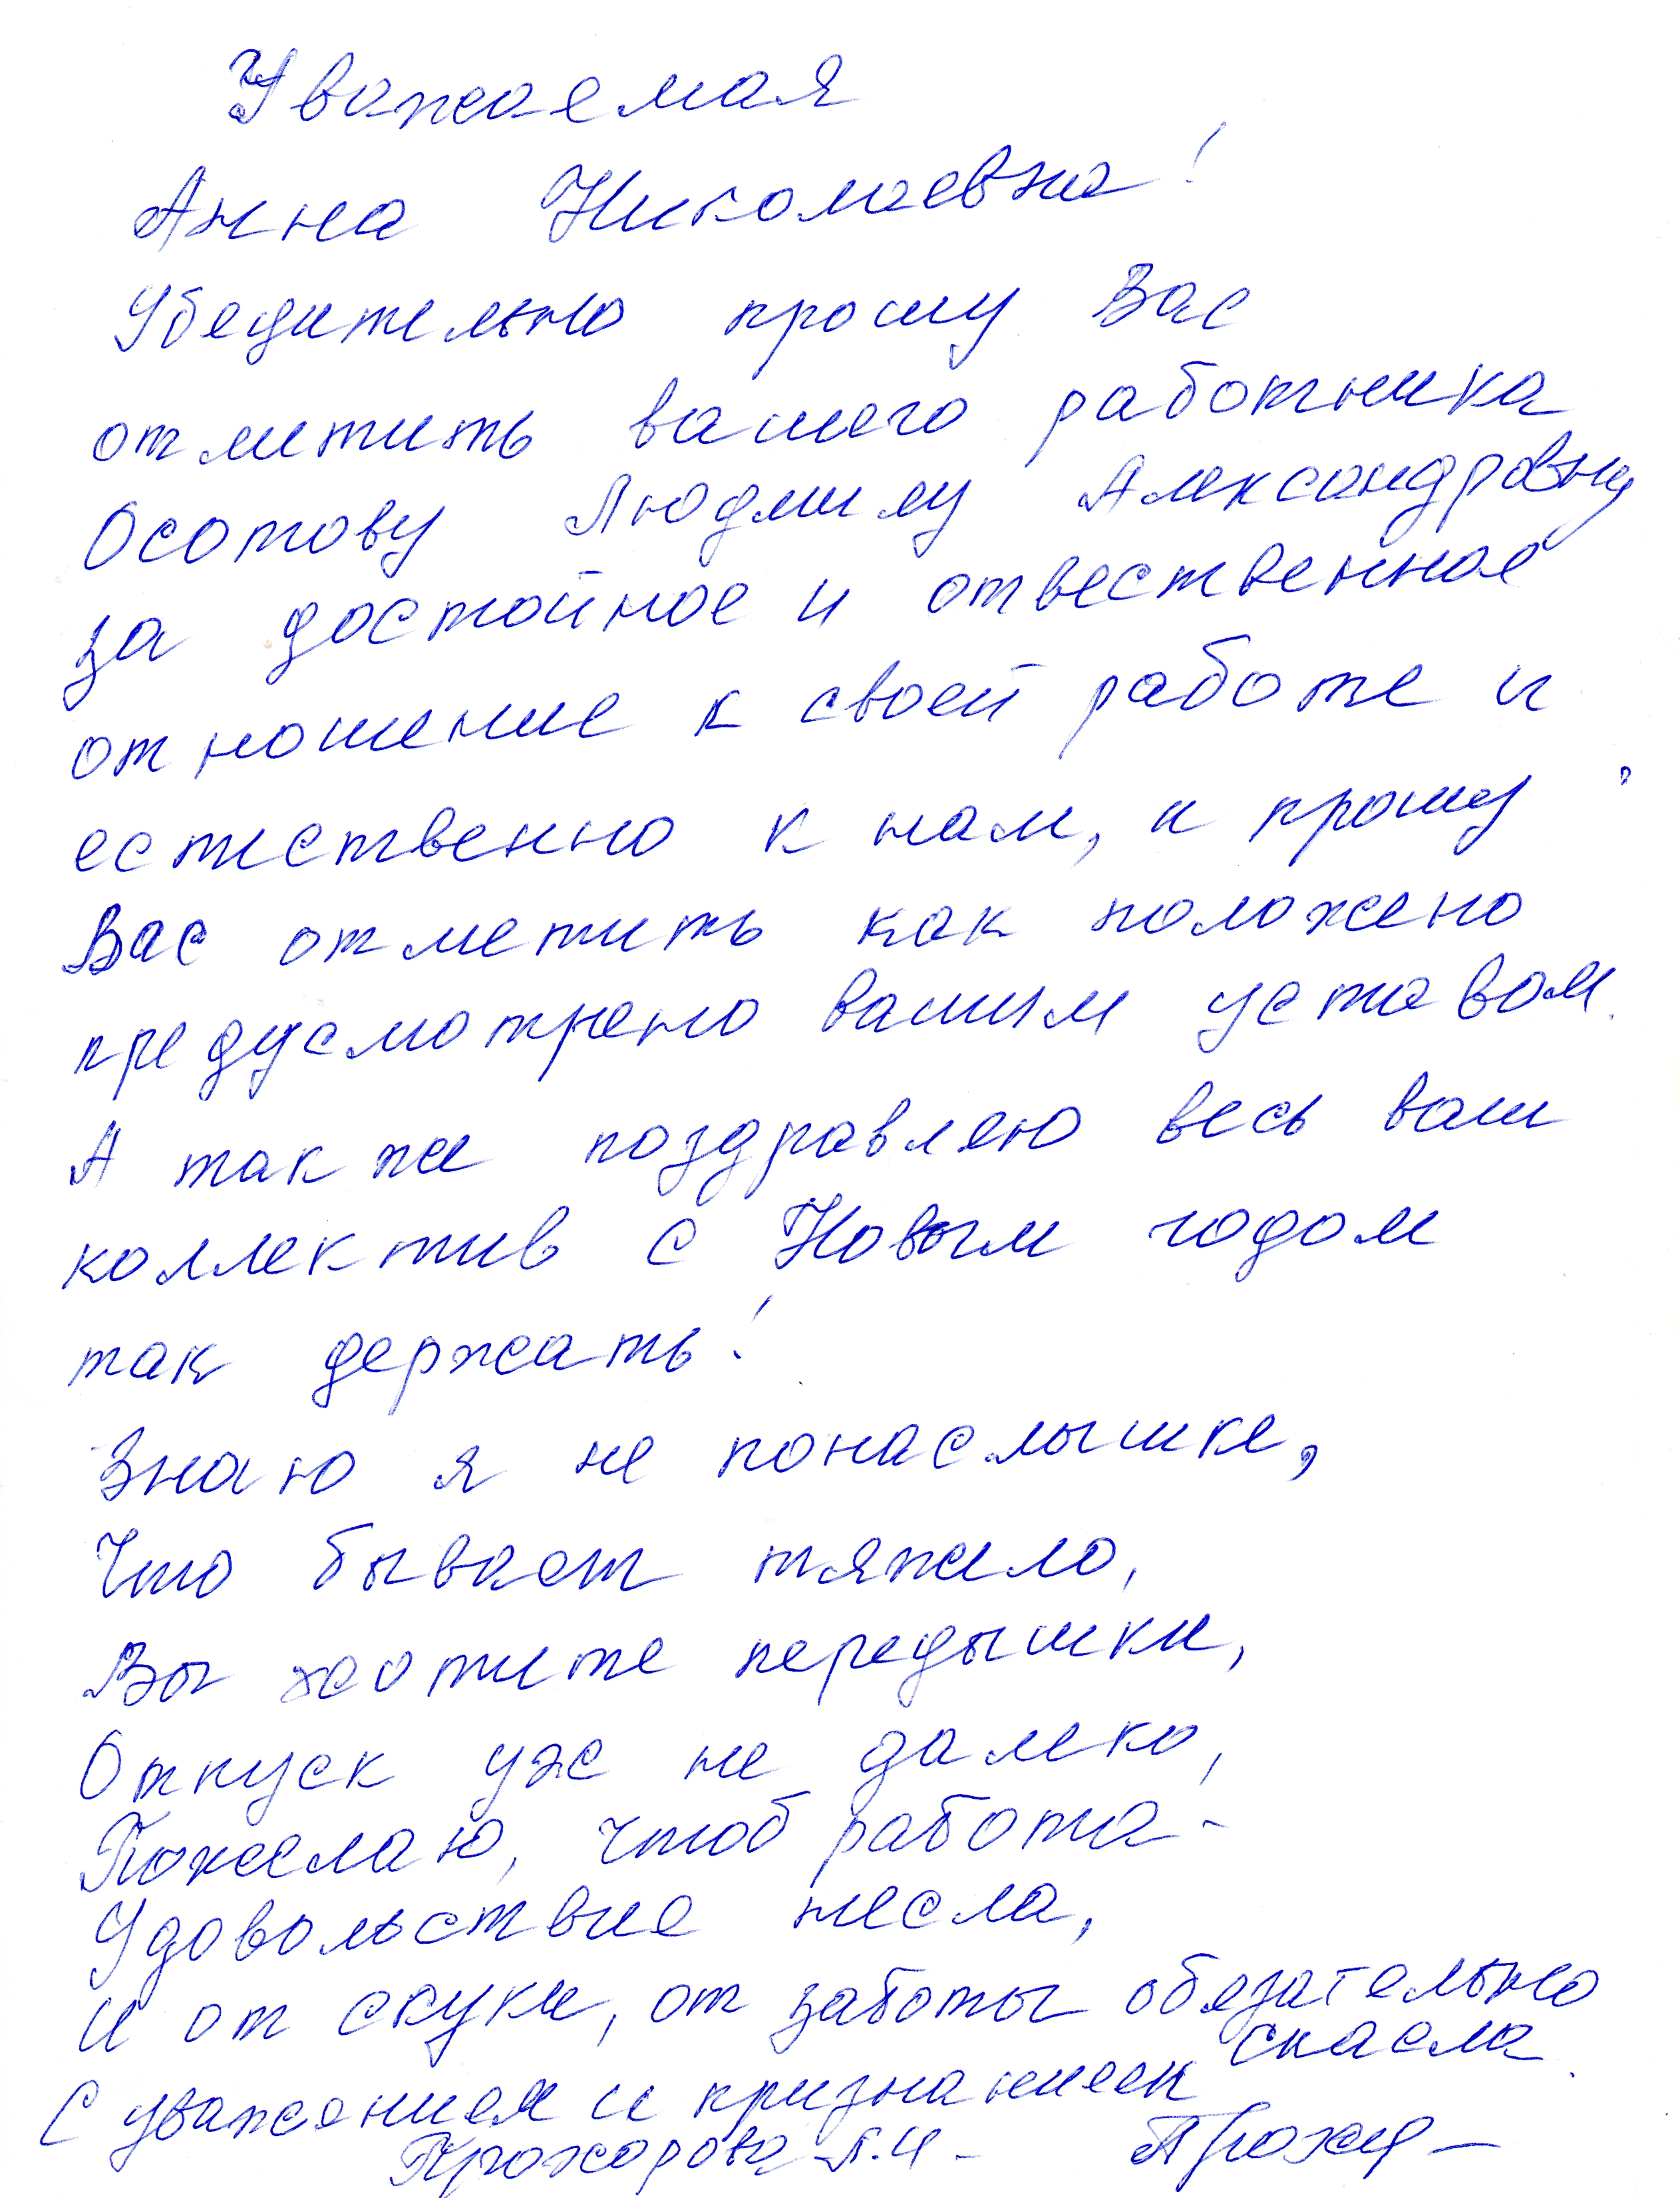 Уважаемая
Анна Николаевна!
Убедительно прошу Вас
отметить вашего работника
Осотову Людмилу Александровну
за достойное и отвественное
отношение к своей работе и
естественно к нам, и прошу
Вас отметить как положено
предусмотрено вашим уставом.
А так же поздравляю весь ваш
коллектив с Новым годом
так держать!
Знаю я не понаслышке,
Что бывает тяжело,
Вы хотите передышки,
Отпуск уже не далеко,
Пожелаю, чтоб работа -
Удовольствие несла,
И от скуки, от заботы обязательно
спасла.
С уважением и признанием
Прохорова Л.И -